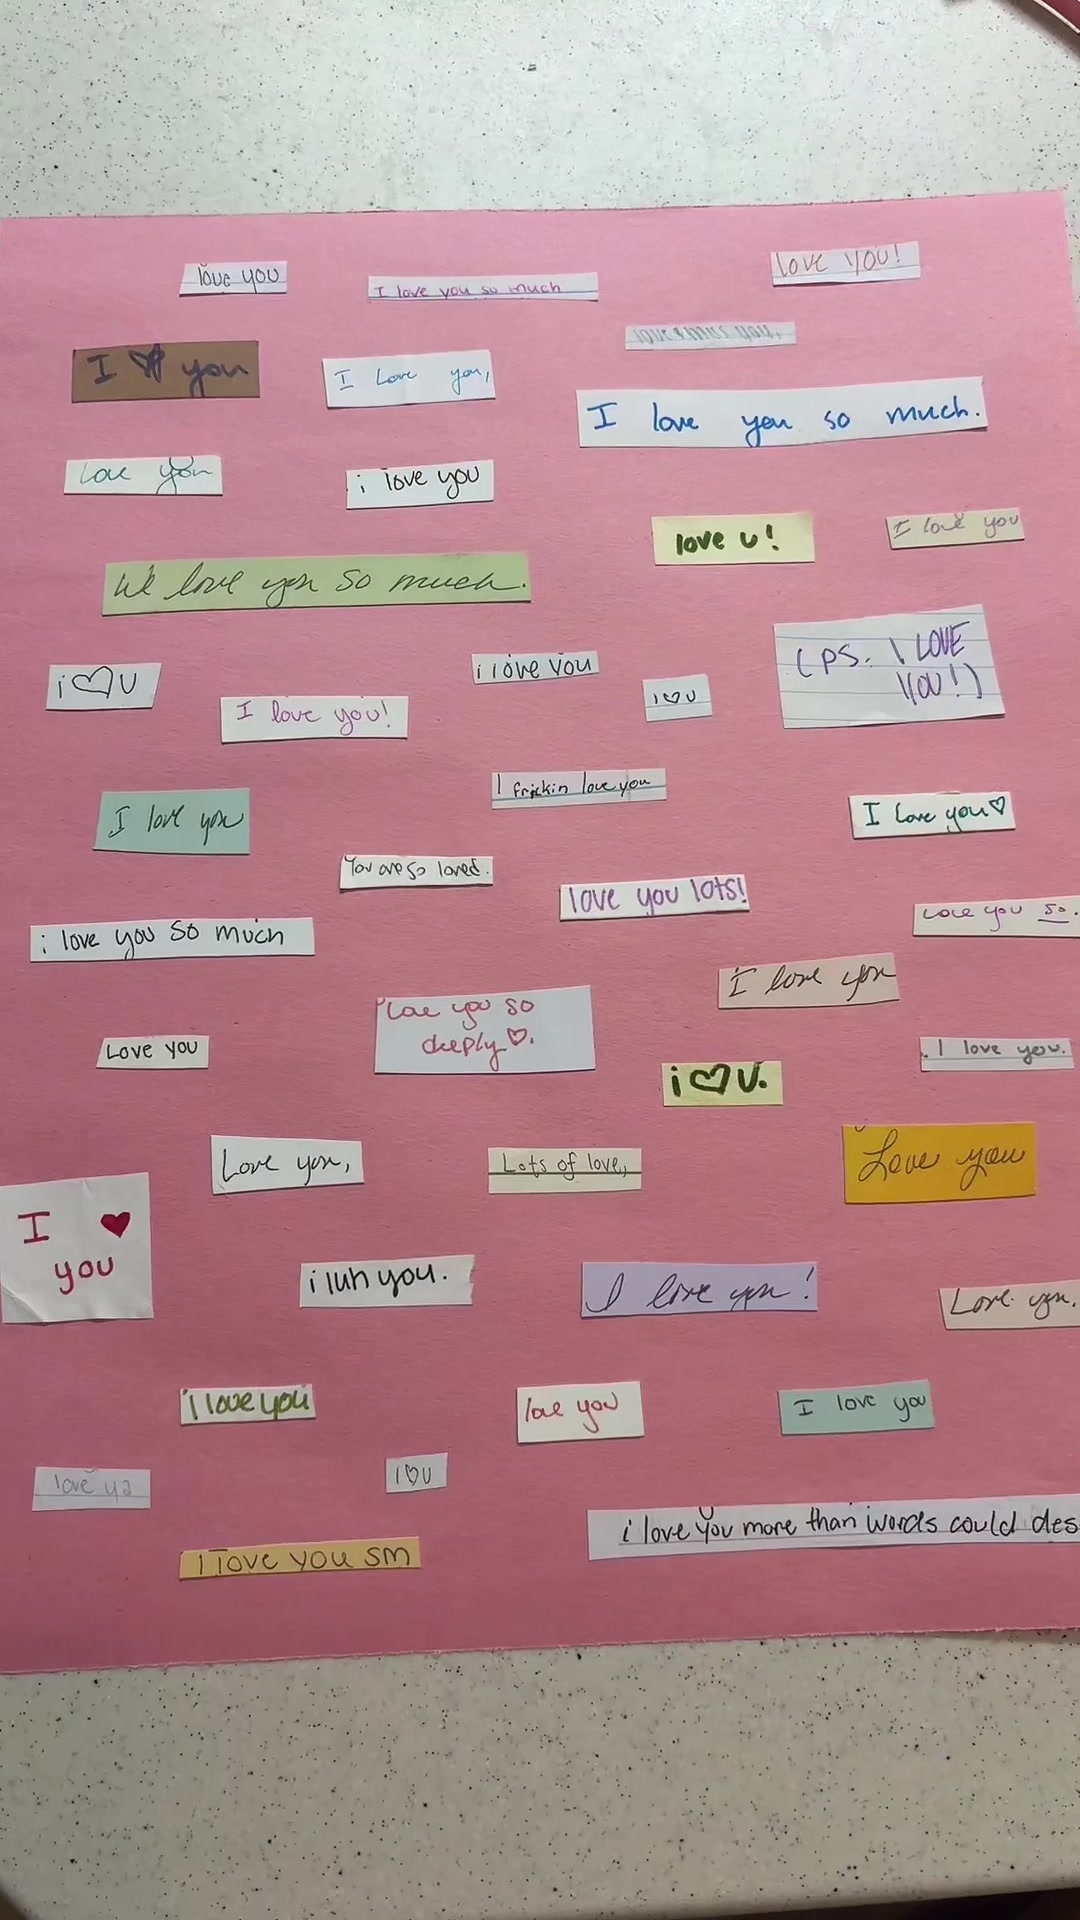 love you
I love you so much
love you!
love & miss you,
I ♥ you
I Love you,
I love you so much.
Love you
i love you
love u!
I love you
We love you so much.
i♡U
i love you
i♡u
(PS. I LOVE
YOU!)
I love you!
I frickin love you
I love you
I Love you♡
You are so loved.
love you lots!
Love you so.
i love you so much
I love you
Love you so
deeply♡.
Love you
I love you.
i♡U.
Love you,
Lots of love,
Love you
I ♥
you
i luh you.
I love you!
Love you,
i love you
love you
I love you
love ya
I♡U
i love you more than words could des
I love you sm